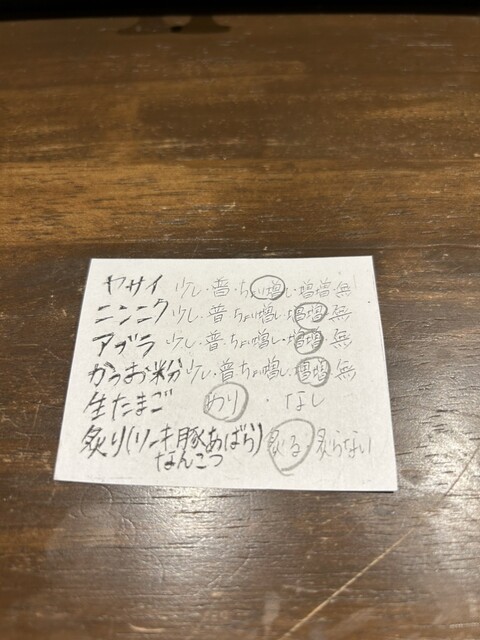 ヤサイ 少し・普・ちょい増し・増増 無
ニンニク 少し・普・ちょい増し・増増 無
アブラ 少し・普・ちょい増し・増増 無
かつお粉 少し・普・ちょい増し・増増 無
生たまご あり ・ なし
炙り(リーキ豚あばら) 炙る・炙らない
なんこつ